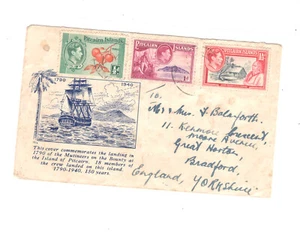 PITCAIRN ISLANDS
PITCAIRN ISLANDS
PITCAIRN ISLANDS
1790 1940
To.
Mr & Mrs. A. Balmforth.
11. Kenmore Crescent
Moore Avenue,
Great Horton,
Bradford,
England, Yorkshire.
This cover commemorates the landing in
1790 of the Mutineers on the Bounty at
the Island of Pitcairn. 18 members of
the crew landed on this island.
1790-1940, 150 years.